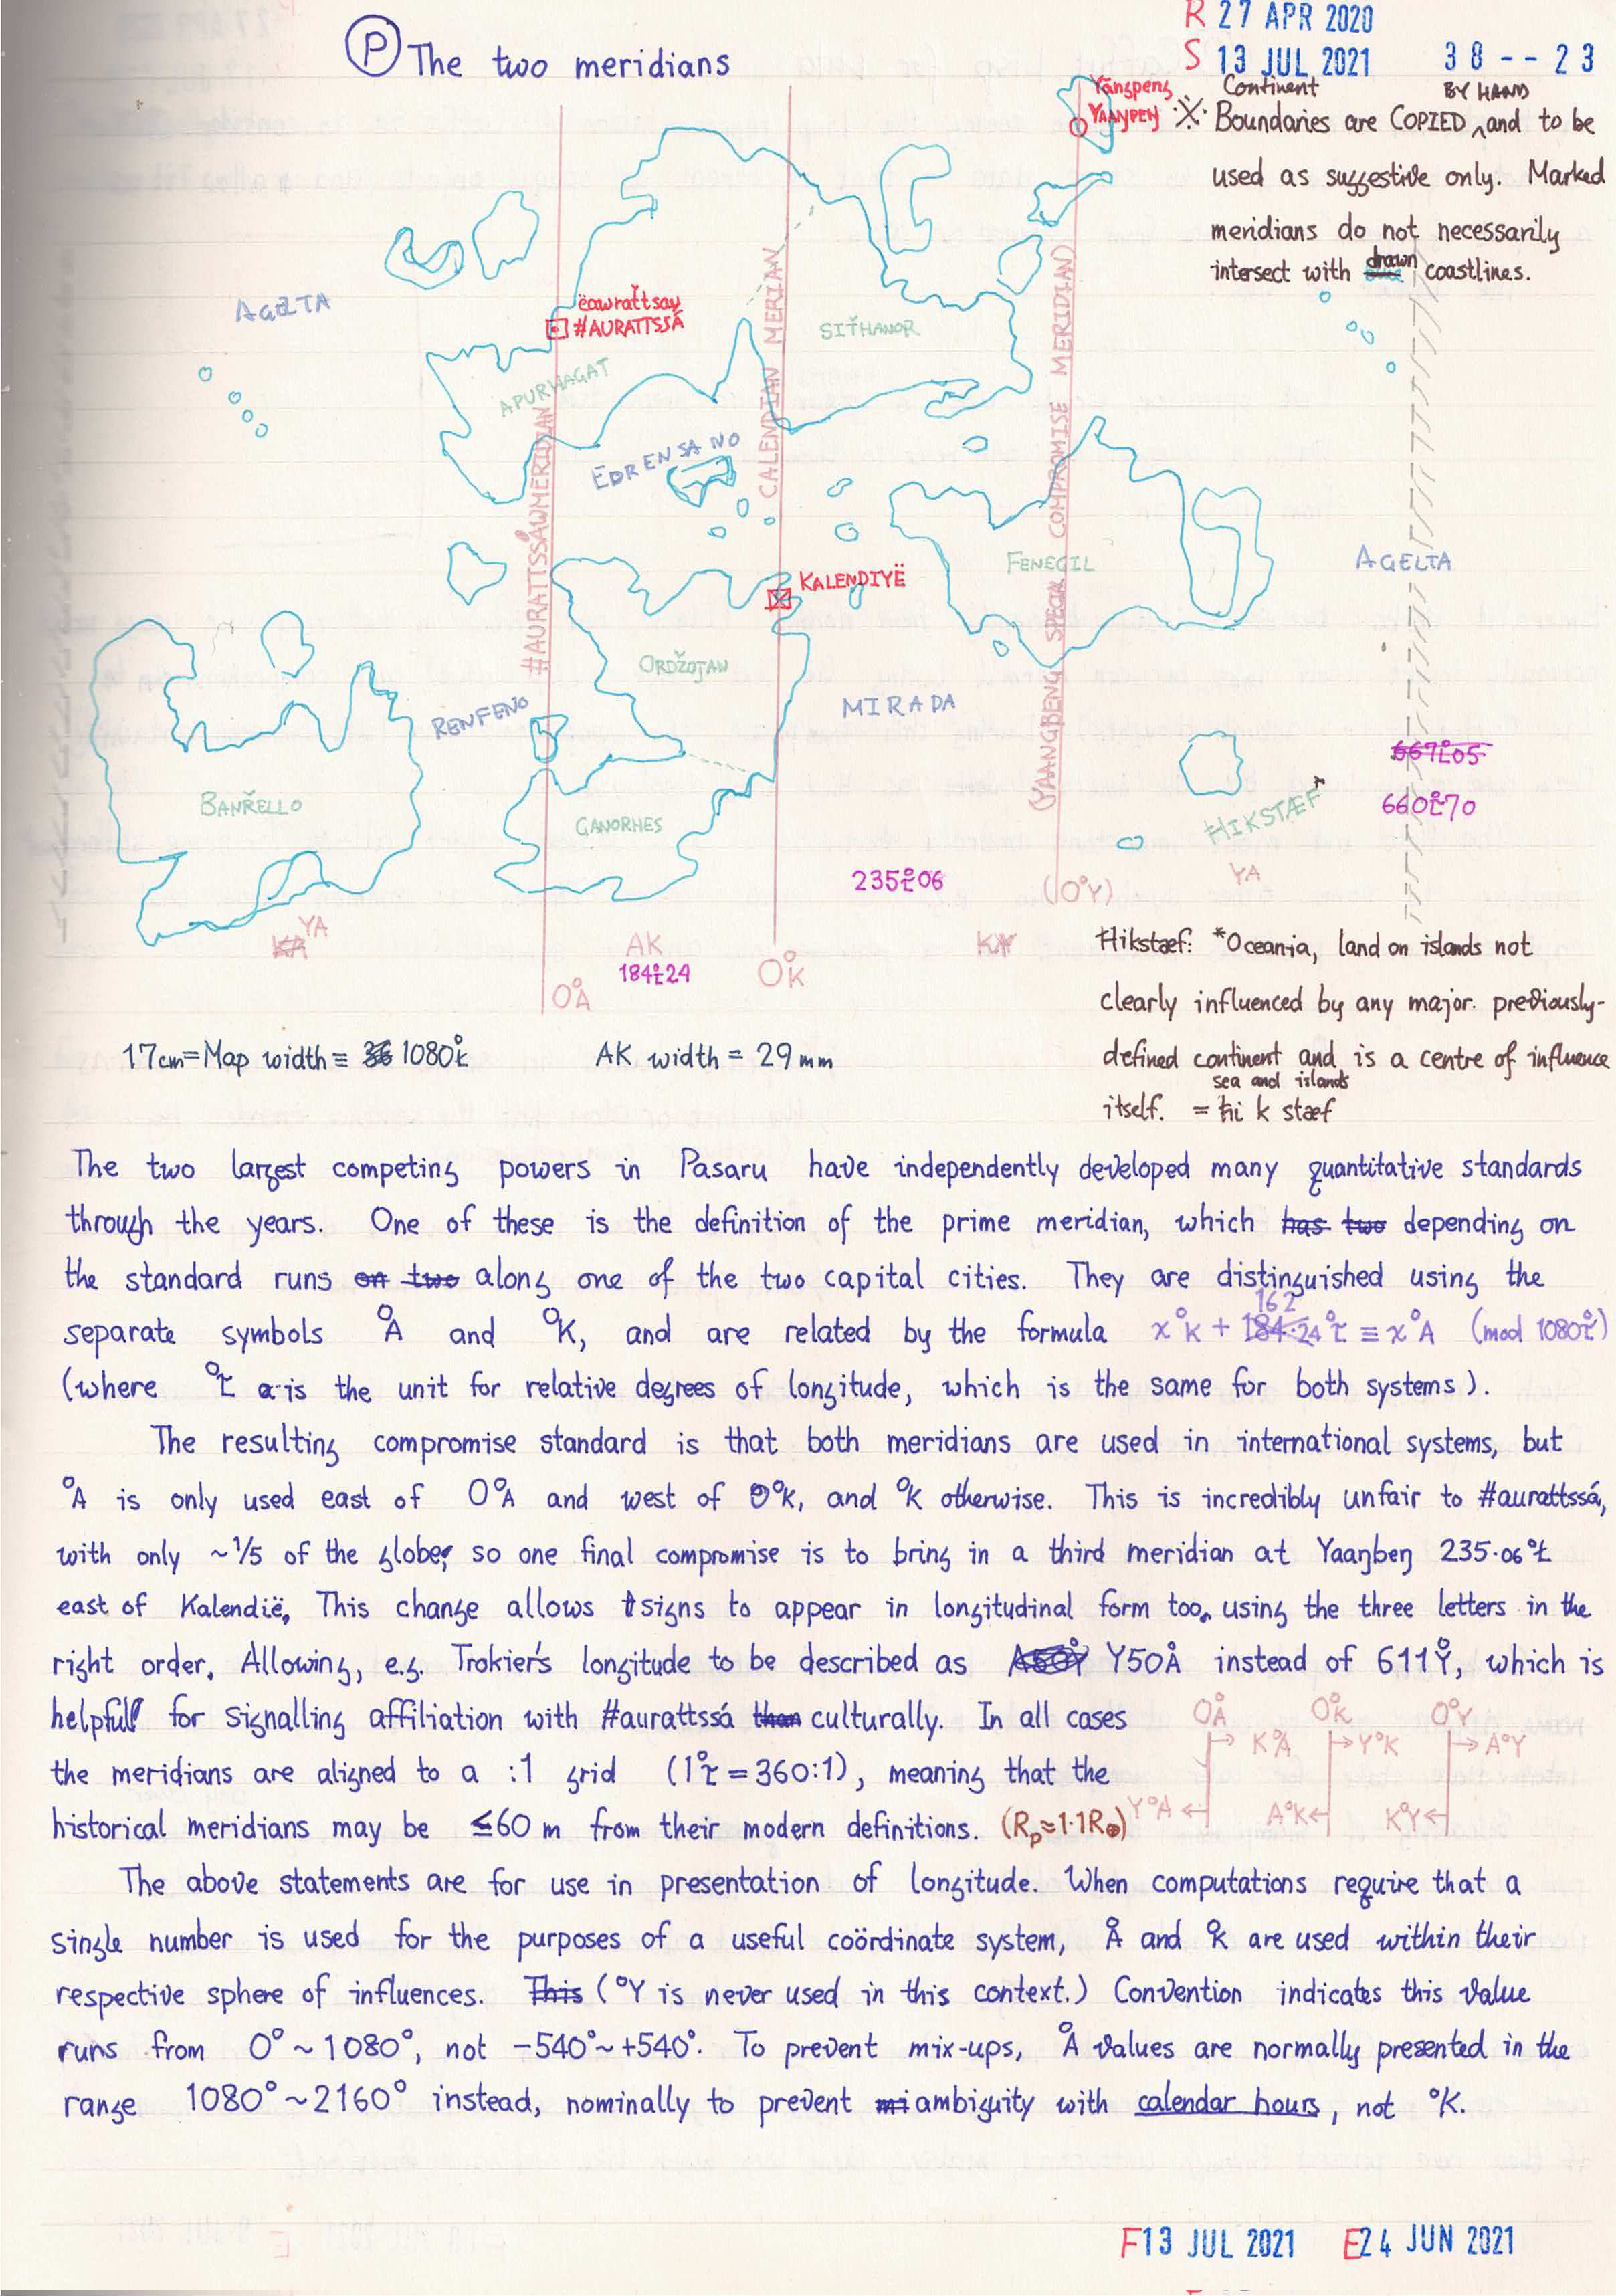 R 27 APR 2020
Ⓟ The two meridians
S 13 JUL 2021 38--23
Yāngpeng
YAAŊPEŊ
Continent BY HAND
※ Boundaries are COPIED ^ and to be
used as suggestive only. Marked
meridians do not necessarily
intersect with drawn coastlines.
AGELTA
ëawrattsay
#AURATTSSÁ
APURHAGAT
SIŤHANOR
EDRENSANO
#AURATTSSÅWMERIDIAN
CALENDIAN MERIAN
(YAANGBENG SPECIAL COMPROMISE MERIDIAN)
FENEGIL
AGELTA
KALENDIYË
ORDŽOTAW
RENFENO
MIRADA
BANŘELLO
GANORHES
ĦIKSTÆF
667°t05
660°t70
235°t06
(0°Y)
YA
KA YA
AK
184t24
KY
0°A
0°K
Ħikstæf: *Oceania, land on islands not
clearly influenced by any major. previously-
defined continent and is a centre of influence
sea and islands
itself. = ħi k stæf
17cm=Map width ≡ 36 1080°t
AK width = 29mm
The two largest competing powers in Pasaru have independently developed many quantitative standards
through the years. One of these is the definition of the prime meridian, which has two depending on
the standard runs on two along one of the two capital cities. They are distinguished using the
162
separate symbols °A and °K, and are related by the formula x°K + 184.24°t ≡ x°A (mod 1080°t)
(where °t a is the unit for relative degrees of longitude, which is the same for both systems).
The resulting compromise standard is that both meridians are used in international systems, but
°A is only used east of 0°A and west of 0°K, and °K otherwise. This is incredibly unfair to #aurattssá,
with only ~1/5 of the globe, so one final compromise is to bring in a third meridian at Yaaŋbeŋ 235·06°t
east of Kalendië. This change allows signs to appear in longitudinal form too, using the three letters in the
right order. Allowing, e.g. Trokier's longitude to be described as Y50Å instead of 611°Y, which is
helpful for signalling affiliation with #aurattssá than culturally. In all cases
the meridians are aligned to a :1 grid (1°t = 360:1), meaning that the
historical meridians may be ≤60 m from their modern definitions. (Rp≈1·1R⊕)
0°A 0°K 0°Y
↦ K°A ↦ Y°K ↦ A°Y
Y°A ↤ A°K ↤ K°Y ↤
The above statements are for use in presentation of longitude. When computations require that a
single number is used for the purposes of a useful coördinate system, °A and °K are used within their
respective sphere of influences. This (°Y is never used in this context.) Convention indicates this value
runs from 0° ~ 1080°, not -540° ~ +540°. To prevent mix-ups, °A values are normally presented in the
range 1080° ~ 2160° instead, nominally to prevent mi ambiguity with calendar hours, not °K.
F 13 JUL 2021 E 24 JUN 2021